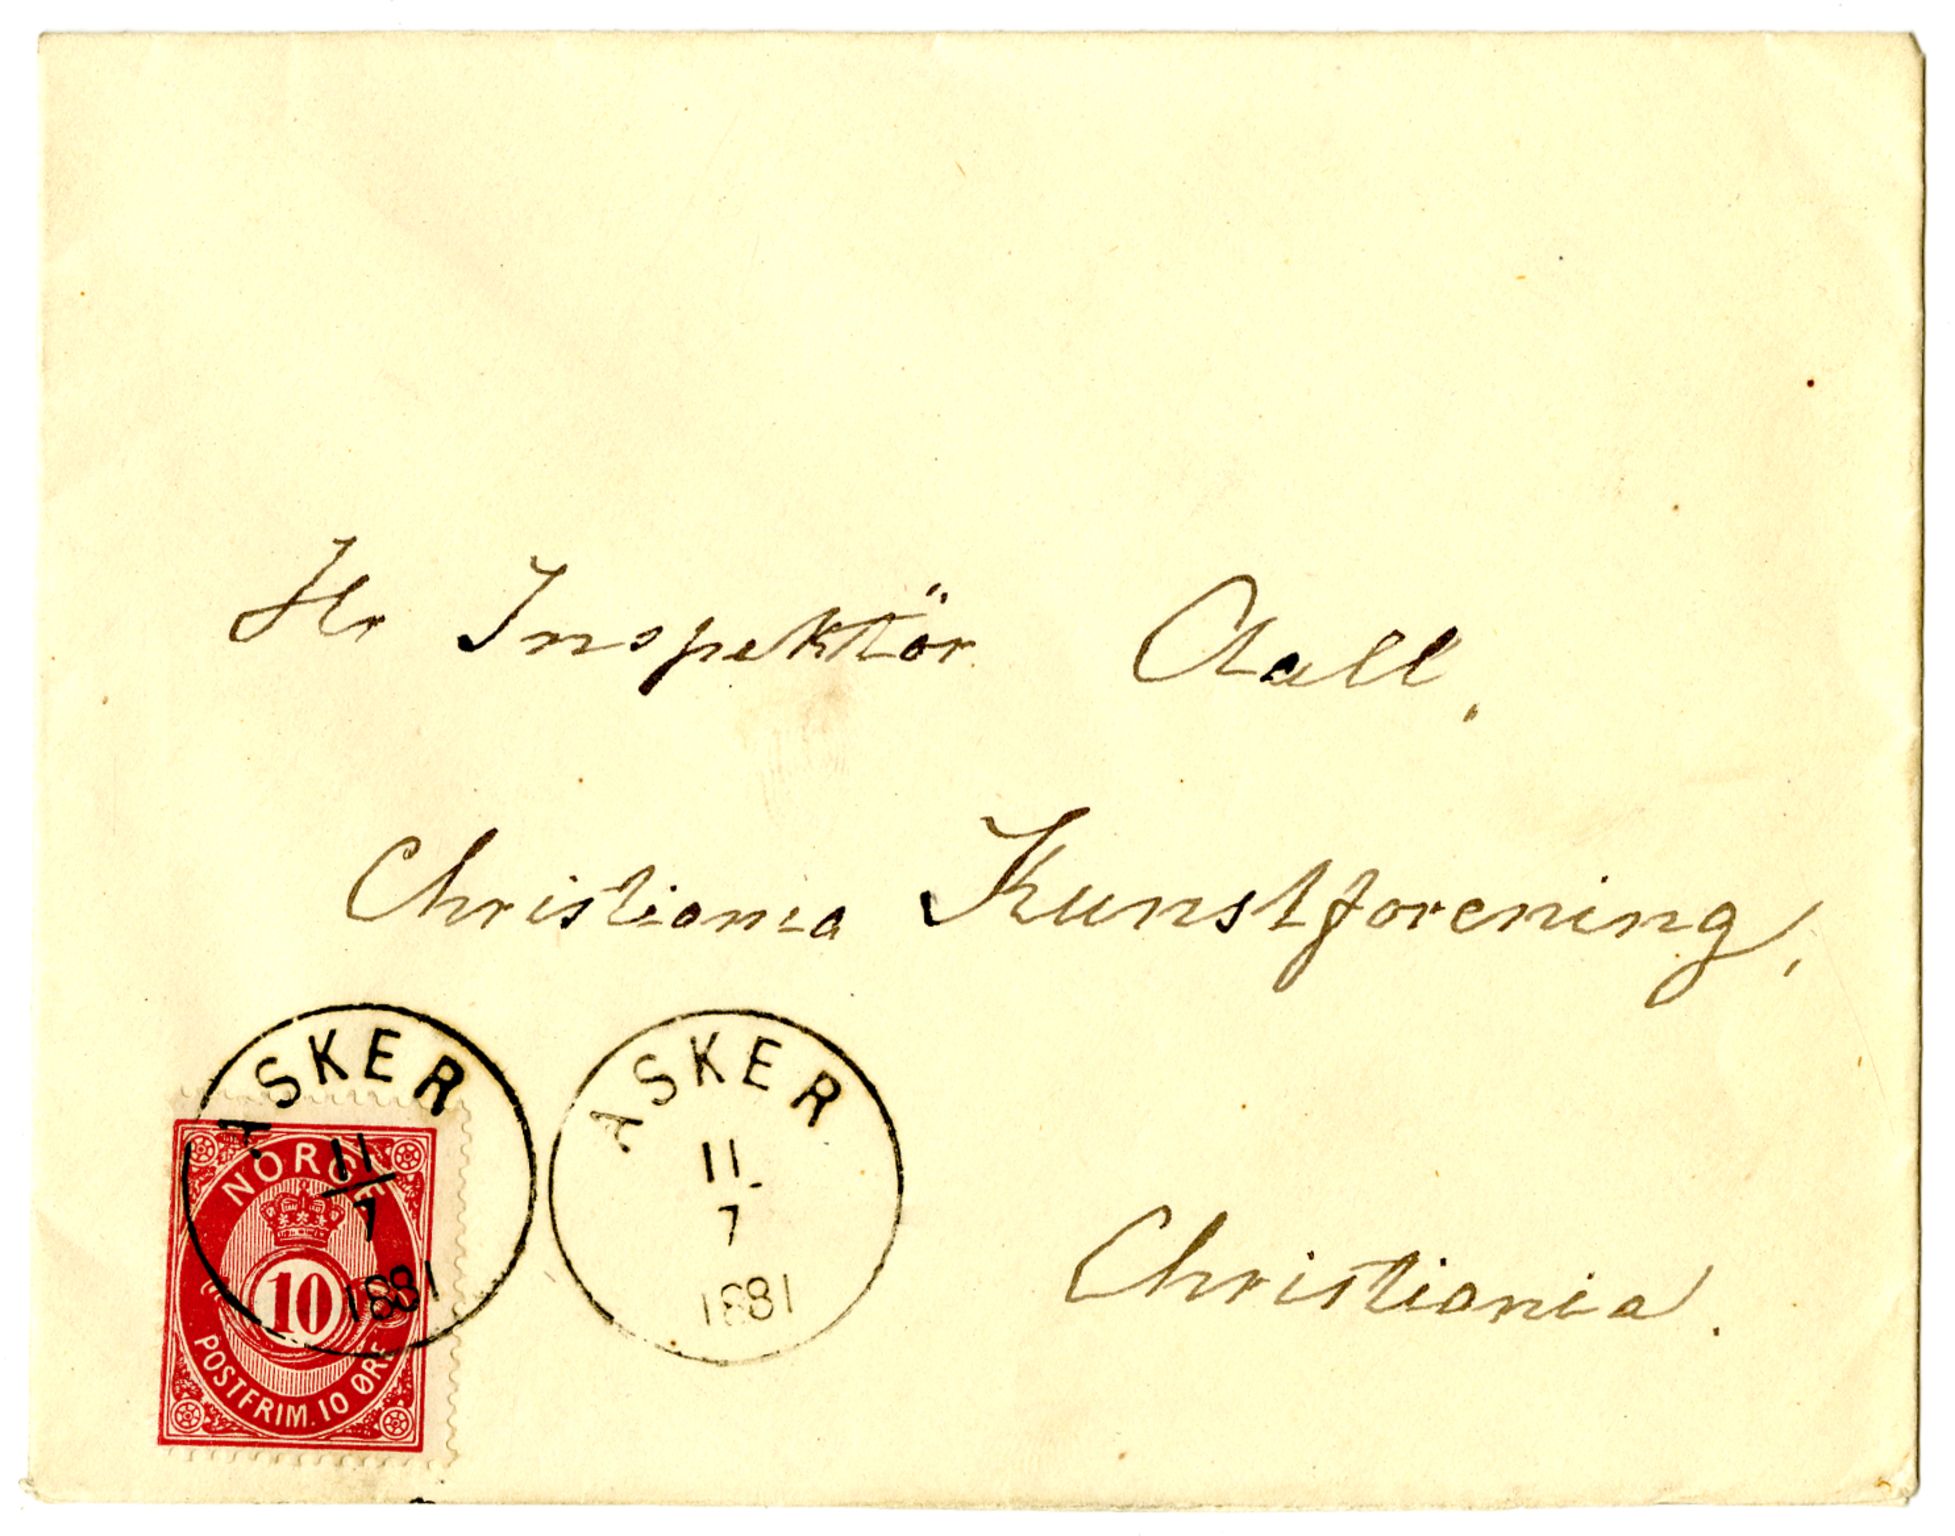 Hr Inspektör Aall,
Christiania Kunstforening,
Christiania.
ASKER
11
7
1881
ASKER
11
7
1881
NORGE
10
POSTFRIM. 10 ØRE